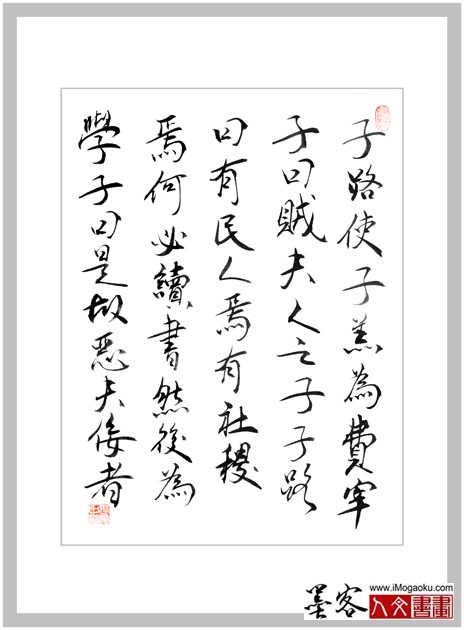 子路使子羔為費宰
子曰賊夫人之子子路
曰有民人焉有社稷
焉何必讀書然後為
學子曰是故惡夫佞者
www.iMogaoku.com
墨客人文書畫